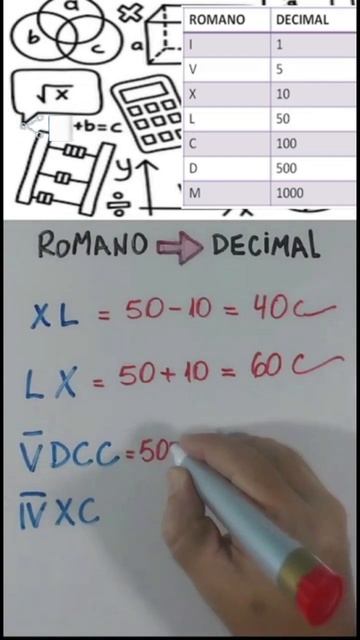 a
b
c
a
√x
+b=c
y
÷
ROMANO DECIMAL
I 1
V 5
X 10
L 50
C 100
D 500
M 1000
ROMANO ⇨ DECIMAL
XL = 50-10 = 40
LX = 50+10 = 60
V̅DCC = 50
I̅V̅XC